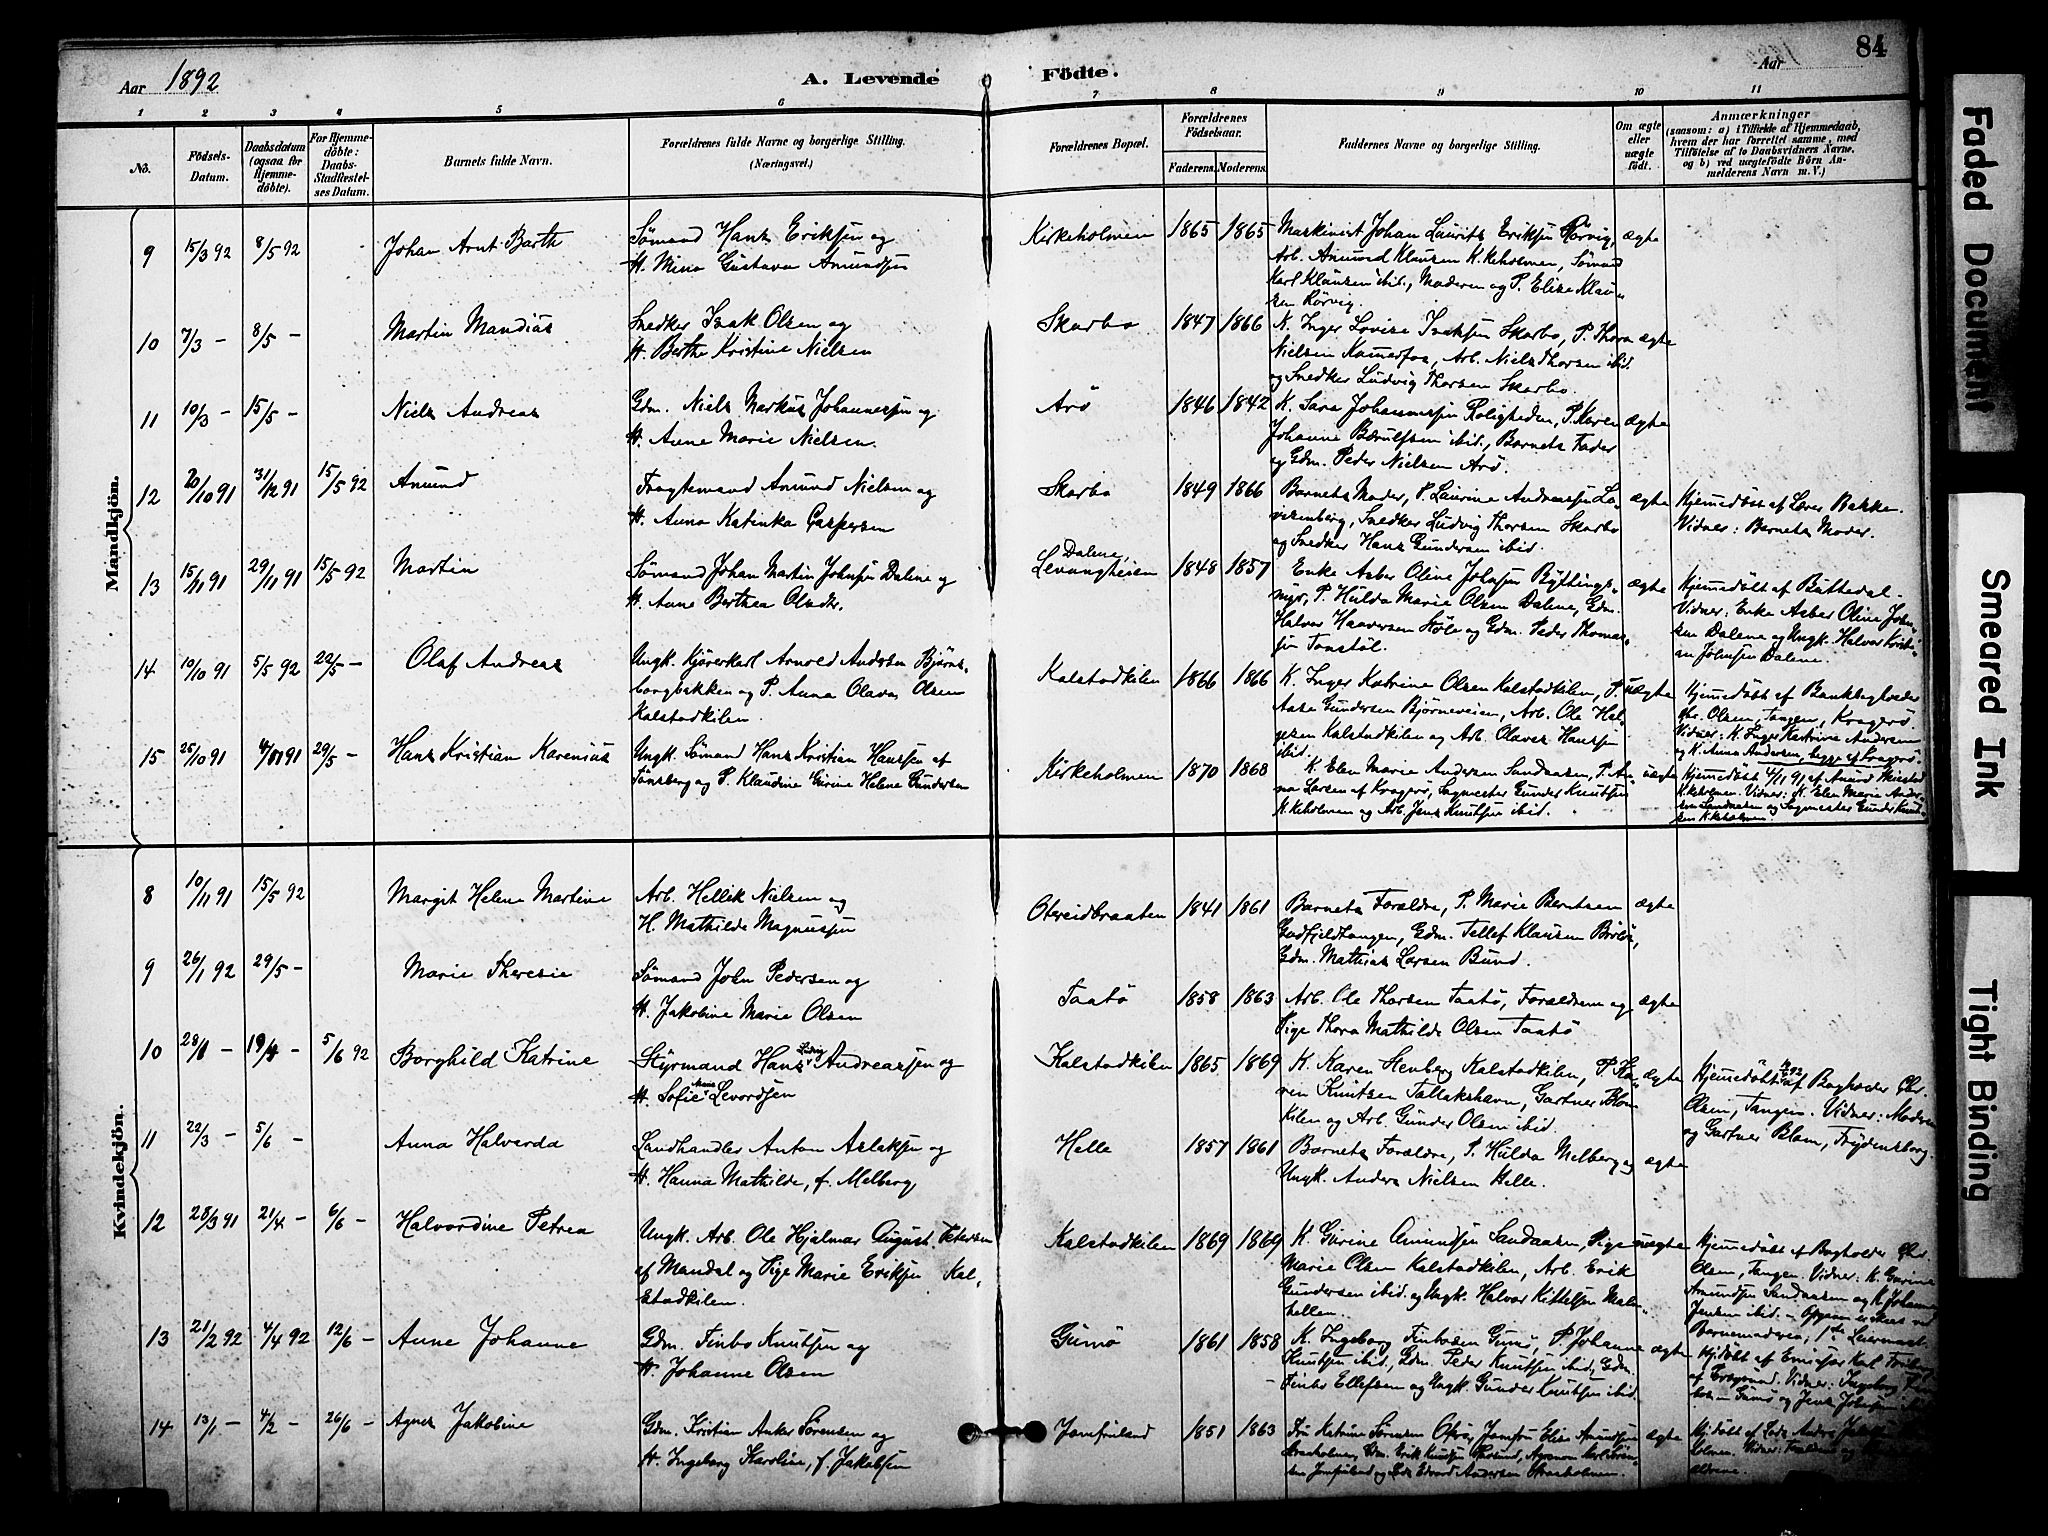 84
Aar 1892
A. Levende Födte.
Aar
1 2 3 4 5 6 7 8 9 10 11
No.
Födsels-Datum.
Daabsdatum (ogsaa for Hjemmedöbte).
For Hjemmedöbte: Daabs-Stadfæstelses Datum.
Barnets fulde Navn.
Forældrenes fulde Navne og borgerlige Stilling.
(Næringsvei.)
Forældrenes Bopæl.
Forældrenes Födselsaar.
Faderens. Moderens.
Faddernes Navne og borgerlige Stilling.
Om ægte eller uægte födt.
Anmærkninger
(saasom: a) i Tilfælde af Hjemmedaab, hvem der har forrettet samme, med Tilföielse af to Daabsvidners Navne, og b) ved uægtefödte Börn Anmelderens Navn m. V.)
Mandkjön.
9 15/3 92 8/5 92 Johan Arnt Barth
Sømand Hans Eriksen og
H. Mina Gustava Amundsen
Kirkeholmen 1865 1865
Maskinist Johan Laurits Eriksen Rörvig,
Arb. Amund Klausen K.keholmen, Sømand
Karl Klausen ibid., Moderen og P. Elise Klau-
sen Rörvig.
ægte
10 7/3 — 8/5 — Martin Mandius
Snedker Isak Olsen og
H. Berthe Kristine Nielsen
Skarbo 1847 1866
K. Inger Lovise Isaksen Skarbo, P. Thora
Nielsen Kamerfos, Arb. Niels Thorsen ibid.
og Snedker Ludvig Thorsen Skarbo.
ægte
11 10/3 — 15/5 — Niels Andreas
Gdm. Niels Markus Johannessen og
H. Anne Marie Nielsen.
Arö 1846 1842
K. Sara Johannessen Roligheden, P. Karen
Johanne Bærulfsen ibid., Barnets Fader
og Gdm. Peder Nielsen Arö.
ægte
12 20/10 91 31/12 91 15/5 92 Amund
Fragtemand Amund Nielsen og
H. Anna Katinka Caspersen
Skarbo 1849 1866
Barnets Moder, P. Laurine Andreassen Lo-
visenberg, Snedker Ludvig Thorsen Skarbo
og Snedker Hans Gundersen ibid.
ægte
Hjemmedöbt af Lærer Bakken.
Vidner: Barnets Moder.
13 15/11 91 29/11 91 15/5 92 Martin
Sømand Johan Martin Johnsen Dalene og
H. Anne Berthea Olsdtr.
Dalene,
Levangheien 1848 1857
Enke Asber Oline Johnsen Ryttings-
myr, P. Hulda Marie Olsen Dalene, Gdm.
Halvor Haaversen Støle og Gdm. Peder Thomas-
sen Tonstøl.
ægte
Hjemmedöbt af Buttedal.
Vidner: Enke Asber Oline John-
sen Dalene og Ungk. Halvor Kristi-
an Johnsen Dalene.
14 10/10 91 5/5 92 22/5 — Olaf Andreas
Ungk. Kjørerkarl Arnold Andersen Bjørns-
borgbakken og P. Anna Olava Olsen
Kalstadkilen.
Kalstadkilen 1866 1866
K. Inger Katrine Olsen Kalstadkilen, P.
Aase Gundersen Bjørneveien, Arb. Ole Hal-
gesen Kalstadkilen og Arb. Olaves Hansen
ibid.
uægte
Hjemmedöbt af Bankbogholder
Chr. Olsen, Tangen, Kragerö.
Vidner: K. Inger Katrine Andersen
og K. Anna Andersen, begge af Kragerö.
15 25/10 91 4/11 91 29/5 — Hans Kristian Karenius
Ungk. Sømand Hans Kristian Hansen af
Tönsberg og P. Klaudine Gurine Helene Gundersen
Kirkeholmen 1870 1868
K. Elen Marie Andersen Sandaasen, P. An-
na Larsen af Kragerö, Sagmester Gunder Knutsen
K.keholmen og Arb. Jens Knutsen ibid.
uægte
Hjemmedöbt 4/11 91 af Amund
K.keholmen. Vidner: K. Elen Marie Ander-
sen Sandaasen og Sagmester Gunder Knut-
sen K.keholmen.
Kvindekjön.
8 10/11 91 15/5 92 Margit Helene Martine
Arb. Hellik Nielsen og
H. Mathilde Magnussen
Otereidbraaten 1841 1861
Barnets Forældre, P. Marie Berntsen
Gudfjeldtangen, Gdm. Tellef Klausen Börös,
Gdm. Mathias Larsen Bund.
ægte
9 26/1 92 29/5 — Marie Theresie
Sømand John Pedersen og
H. Jakobine Marie Olsen
Taatö 1858 1863
Arb. Ole Thorsen Taatö, Forældrene og
Pige Thora Mathilde Olsen Taatö
ægte
10 28/1 — 19/4 — 5/6 92 Borghild Katrine
Styrmand Hans Ludvig Andreassen og
H. Sofie Marie Levordsen
Kalstadkilen 1865 1869
K. Karen Stenberg Kalstadkilen, P. Ka-
ren Knutsen Tallakshavn, Gartner Blom
Kilen og Arb. Gunder Olsen ibid.
ægte
Hjemmedöbt af Bogholder Chr.
Olsen, Tangen. Vidner: Moderen
og Gartner Blom, Frydensborg.
11 22/3 — 5/6 — Anna Halvarda
Landhandler Anton Aslaksen og
H. Hanna Mathilde, f. Melberg
Helle 1857 1861
Barnets Forældre, P. Hulda Melberg og
Ungk. Anders Nielsen Helle.
ægte
12 28/3 91 21/4 — 6/6 — Halvordine Petrea
Ungk. Arb. Ole Hjalmar August Petersen
af Mandal og Pige Marie Eriksen Kal-
stadkilen.
Kalstadkilen 1869 1869
K. Gurine Amundsen Sandaasen, Pige
Marie Olsen Kalstadkilen, Arb. Erik
Gundersen ibid. og Ungk. Halvor Kittelsen Malm-
hellen.
uægte
Hjemmedöbt af Bogholder Chr.
Olsen, Tangen. Vidner: K. Gurine
Amundsen Sandaasen og K. Johanne
Jensen ibid. — Opgaven er skeet ved
13 21/2 92 4/4 92 12/6 — Anne Johanne
Gdm. Finbo Knutsen og
H. Johanne Olsen
Gumö 1861 1858
K. Ingeborg Finbosen Gumö, P. Johanne
Knutsen ibid., Gdm. Peder Knutsen ibid., Gdm.
Finbo Ellefsen og Ungk. Gunder Knutsen ibid.
ægte
14 13/1 — 4/2 — 26/6 — Agnes Jakobine
Gdm. Kristian Anker Sørensen og
H. Ingeborg Karoline, f. Jakobsen
Jomfruland 1851 1863
ægte
Faded Document
Smeared Ink
Tight Binding